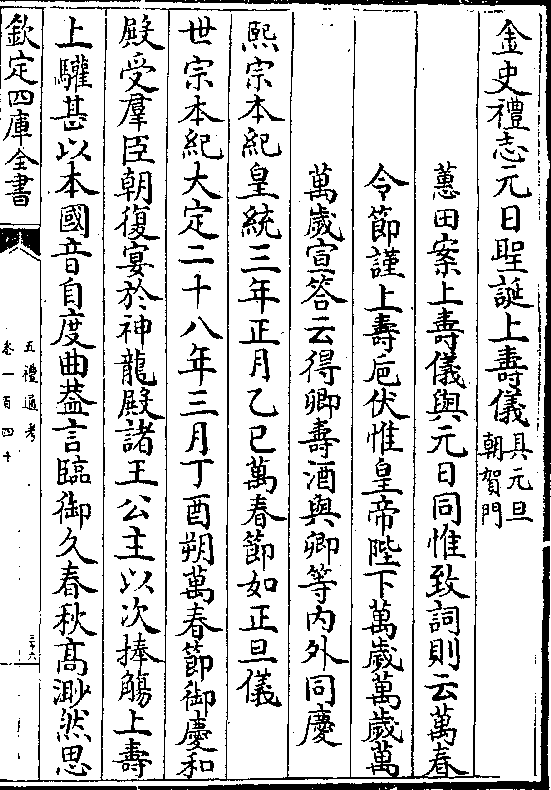 金史禮志元日聖誕上壽儀具元旦朝賀門
蕙田案上壽儀與元日同惟致詞則云萬春
令節謹上壽巵伏惟皇帝陛下萬歲萬歲萬
萬歲宣答云得卿壽酒與卿等內外同慶
熙宗本紀皇統三年正月乙巳萬春節如正旦儀
世宗本紀大定二十八年三月丁酉朔萬春節御慶和
殿受羣臣朝復宴於神龍殿諸王公主以次捧觴上壽
上驩甚以本國音自度曲葢言臨御久春秋髙渺然思
欽定四庫全書
五禮通考
卷一百四十
三十六